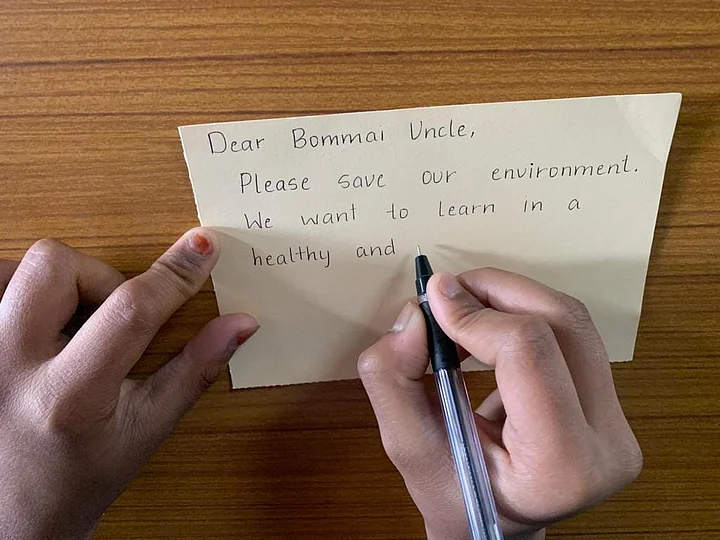 Dear Bommai Uncle,
Please save our environment.
We want to learn in a
healthy and